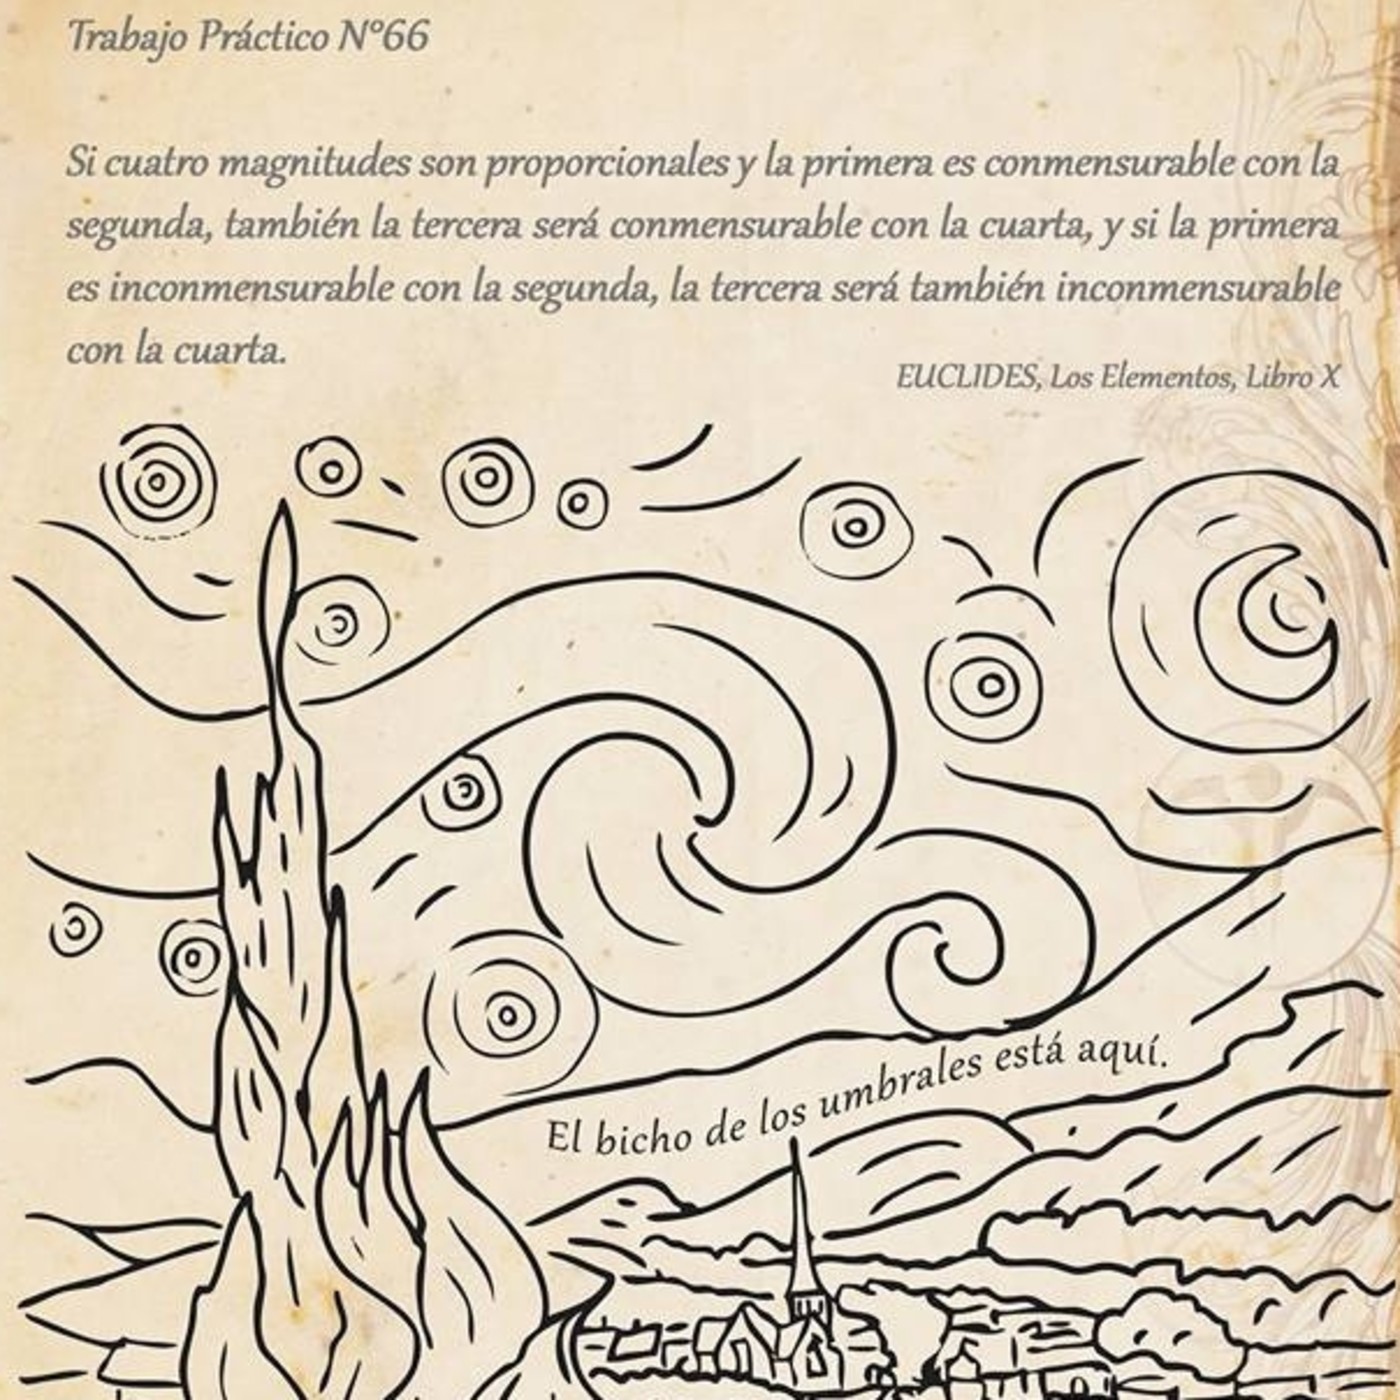 Trabajo Práctico N°66
Si cuatro magnitudes son proporcionales y la primera es conmensurable con la
segunda, también la tercera será conmensurable con la cuarta, y si la primera
es inconmensurable con la segunda, la tercera será también inconmensurable
con la cuarta.
EUCLIDES, Los Elementos, Libro X
El bicho de los umbrales está aquí.